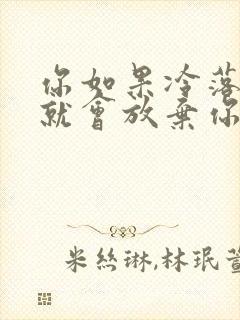 你如果冷落
就會放棄你
米絲琳,林珉萱